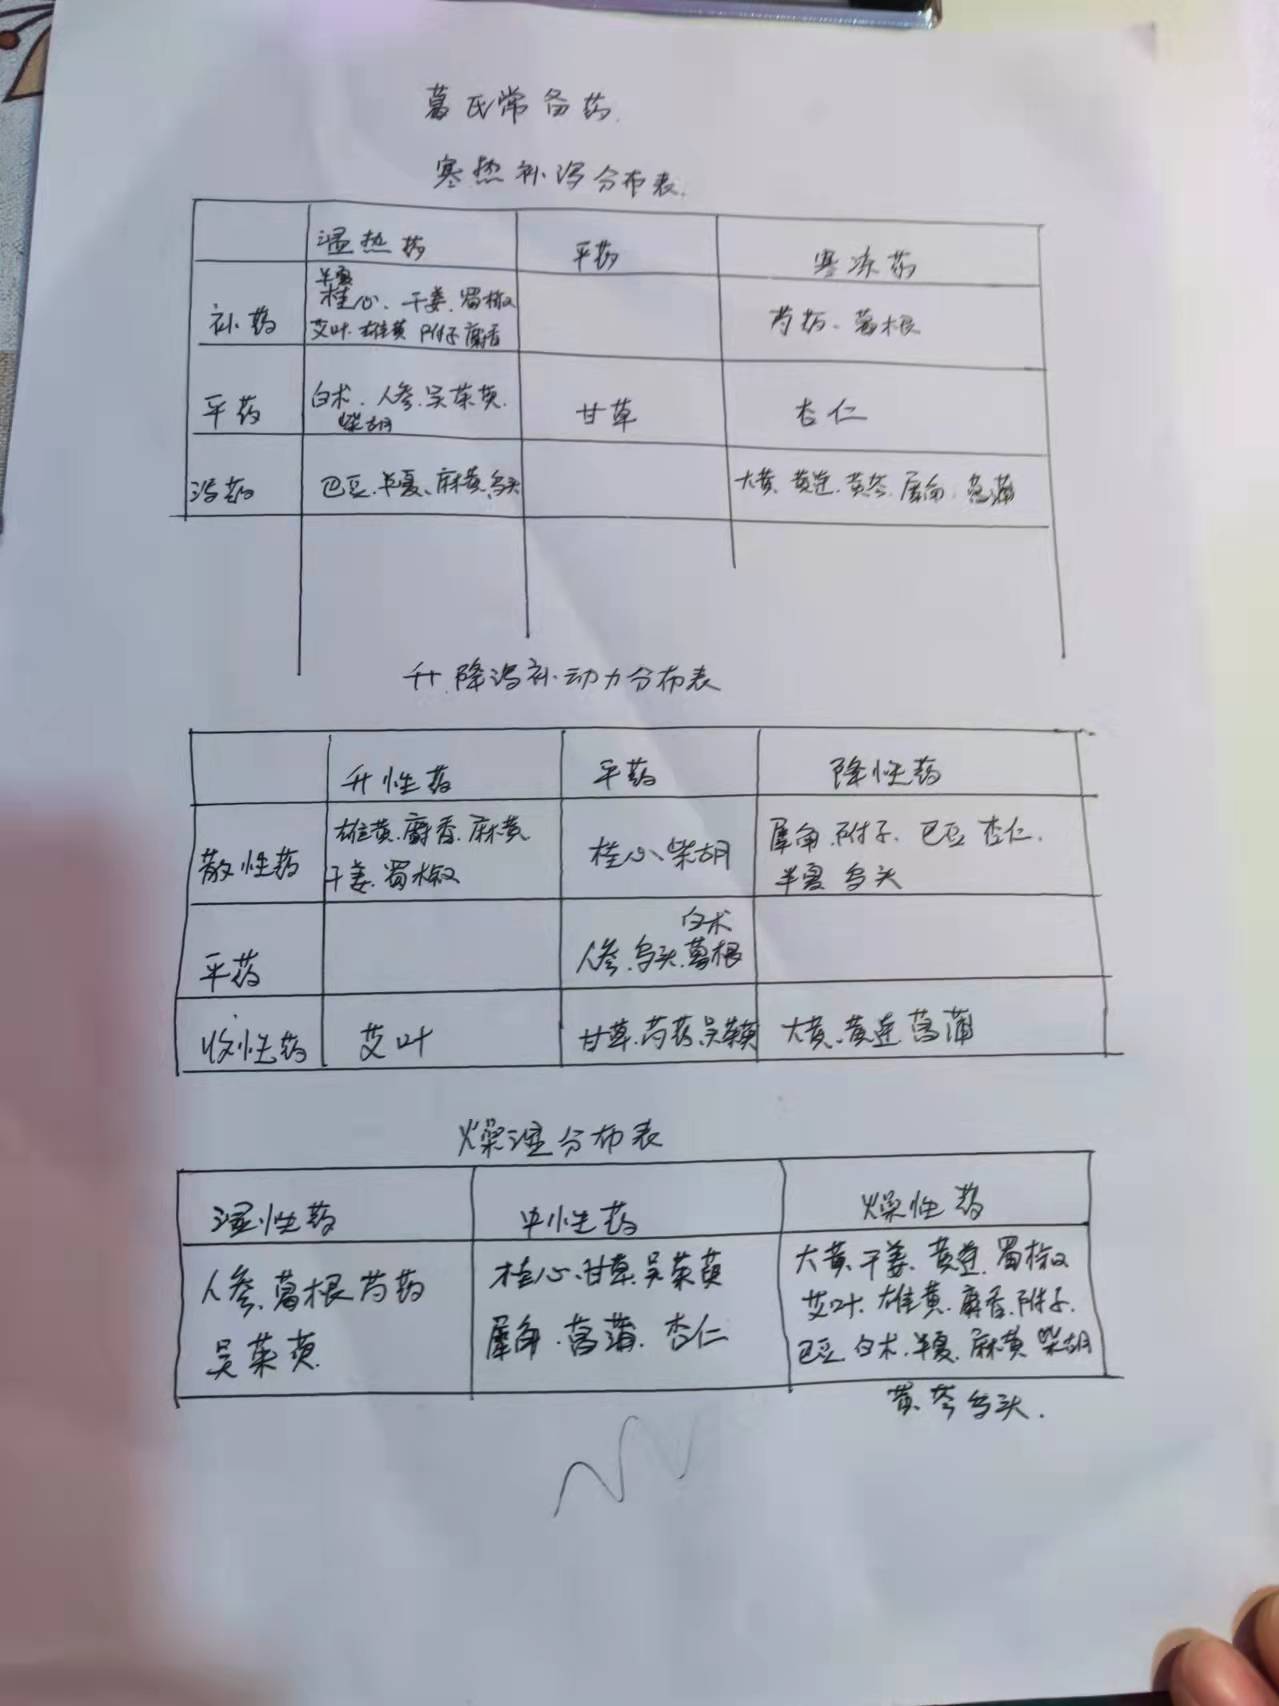 葛氏常备药.
寒热补泻分布表.
温热药 平药 寒凉药
补药
半夏
桂心、干姜.蜀椒
艾叶.雄黄 附子 麝香
芍药、葛根
平药
白术.人参.吴茱萸.
柴胡
甘草
杏仁
泻药
巴豆.半夏、麻黄.乌头
大黄.黄连.黄芩.犀角.菖蒲
升.降泻补动力分布表
升性药 平药 降性药
散性药
雄黄.麝香.麻黄
干姜.蜀椒
桂心、柴胡
犀角.附子.巴豆 杏仁.
半夏 乌头
平药
白术
人参.乌头.葛根
收性药 艾叶 甘草.芍药.吴茱萸 大黄、黄连 菖蒲
燥湿分布表
湿性药 中性药 燥性药
人参.葛根 芍药
吴茱萸.
桂心.甘草.吴茱萸
犀角.菖蒲.杏仁
大黄.干姜.黄连.蜀椒
艾叶.雄黄.麝香.附子.
巴豆 白术.半夏.麻黄 柴胡
黄芩 乌头.